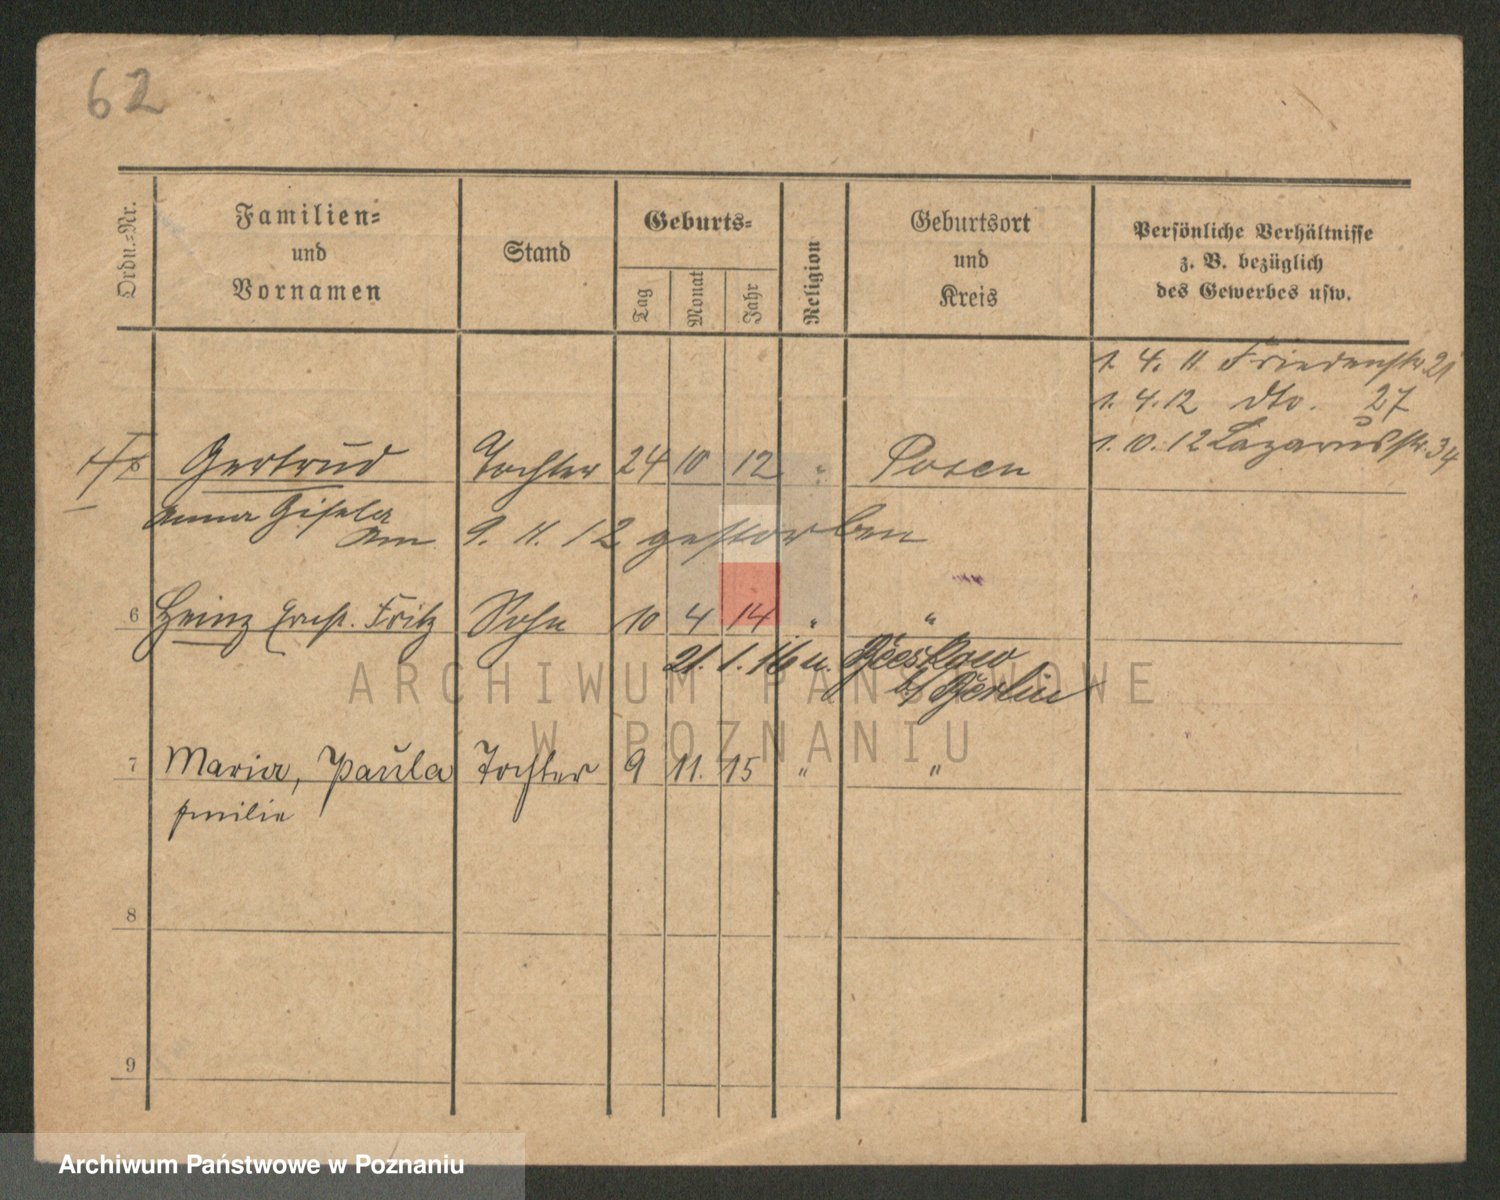 62
Ordn.-Nr.
Familien-
und
Vornamen
Stand
Geburts-
Tag
Monat
Jahr
Religion
Geburtsort
und
Kreis
Persönliche Verhältnisse
z. B. bezüglich
des Gewerbes usw.
1. 4. 11 Friedenstr. 21
1. 4. 12 dto. 27
1. 10. 12 Lazarusstr. 34
Gertrud Tochter 24 10 12 " Posen
Anna Gisela
Am 9. 11. 12 gestorben
6 Heinz Ernst. Fritz Sohn 10 4 14 " "
21. 1. 16 n. Beeskow
b/ Berlin
7 Maria, Paula Tochter 9 11. 15 " "
Emilie
8
9
ARCHIWUM PAŃSTWOWE
W POZNANIU
Archiwum Państwowe w Poznaniu